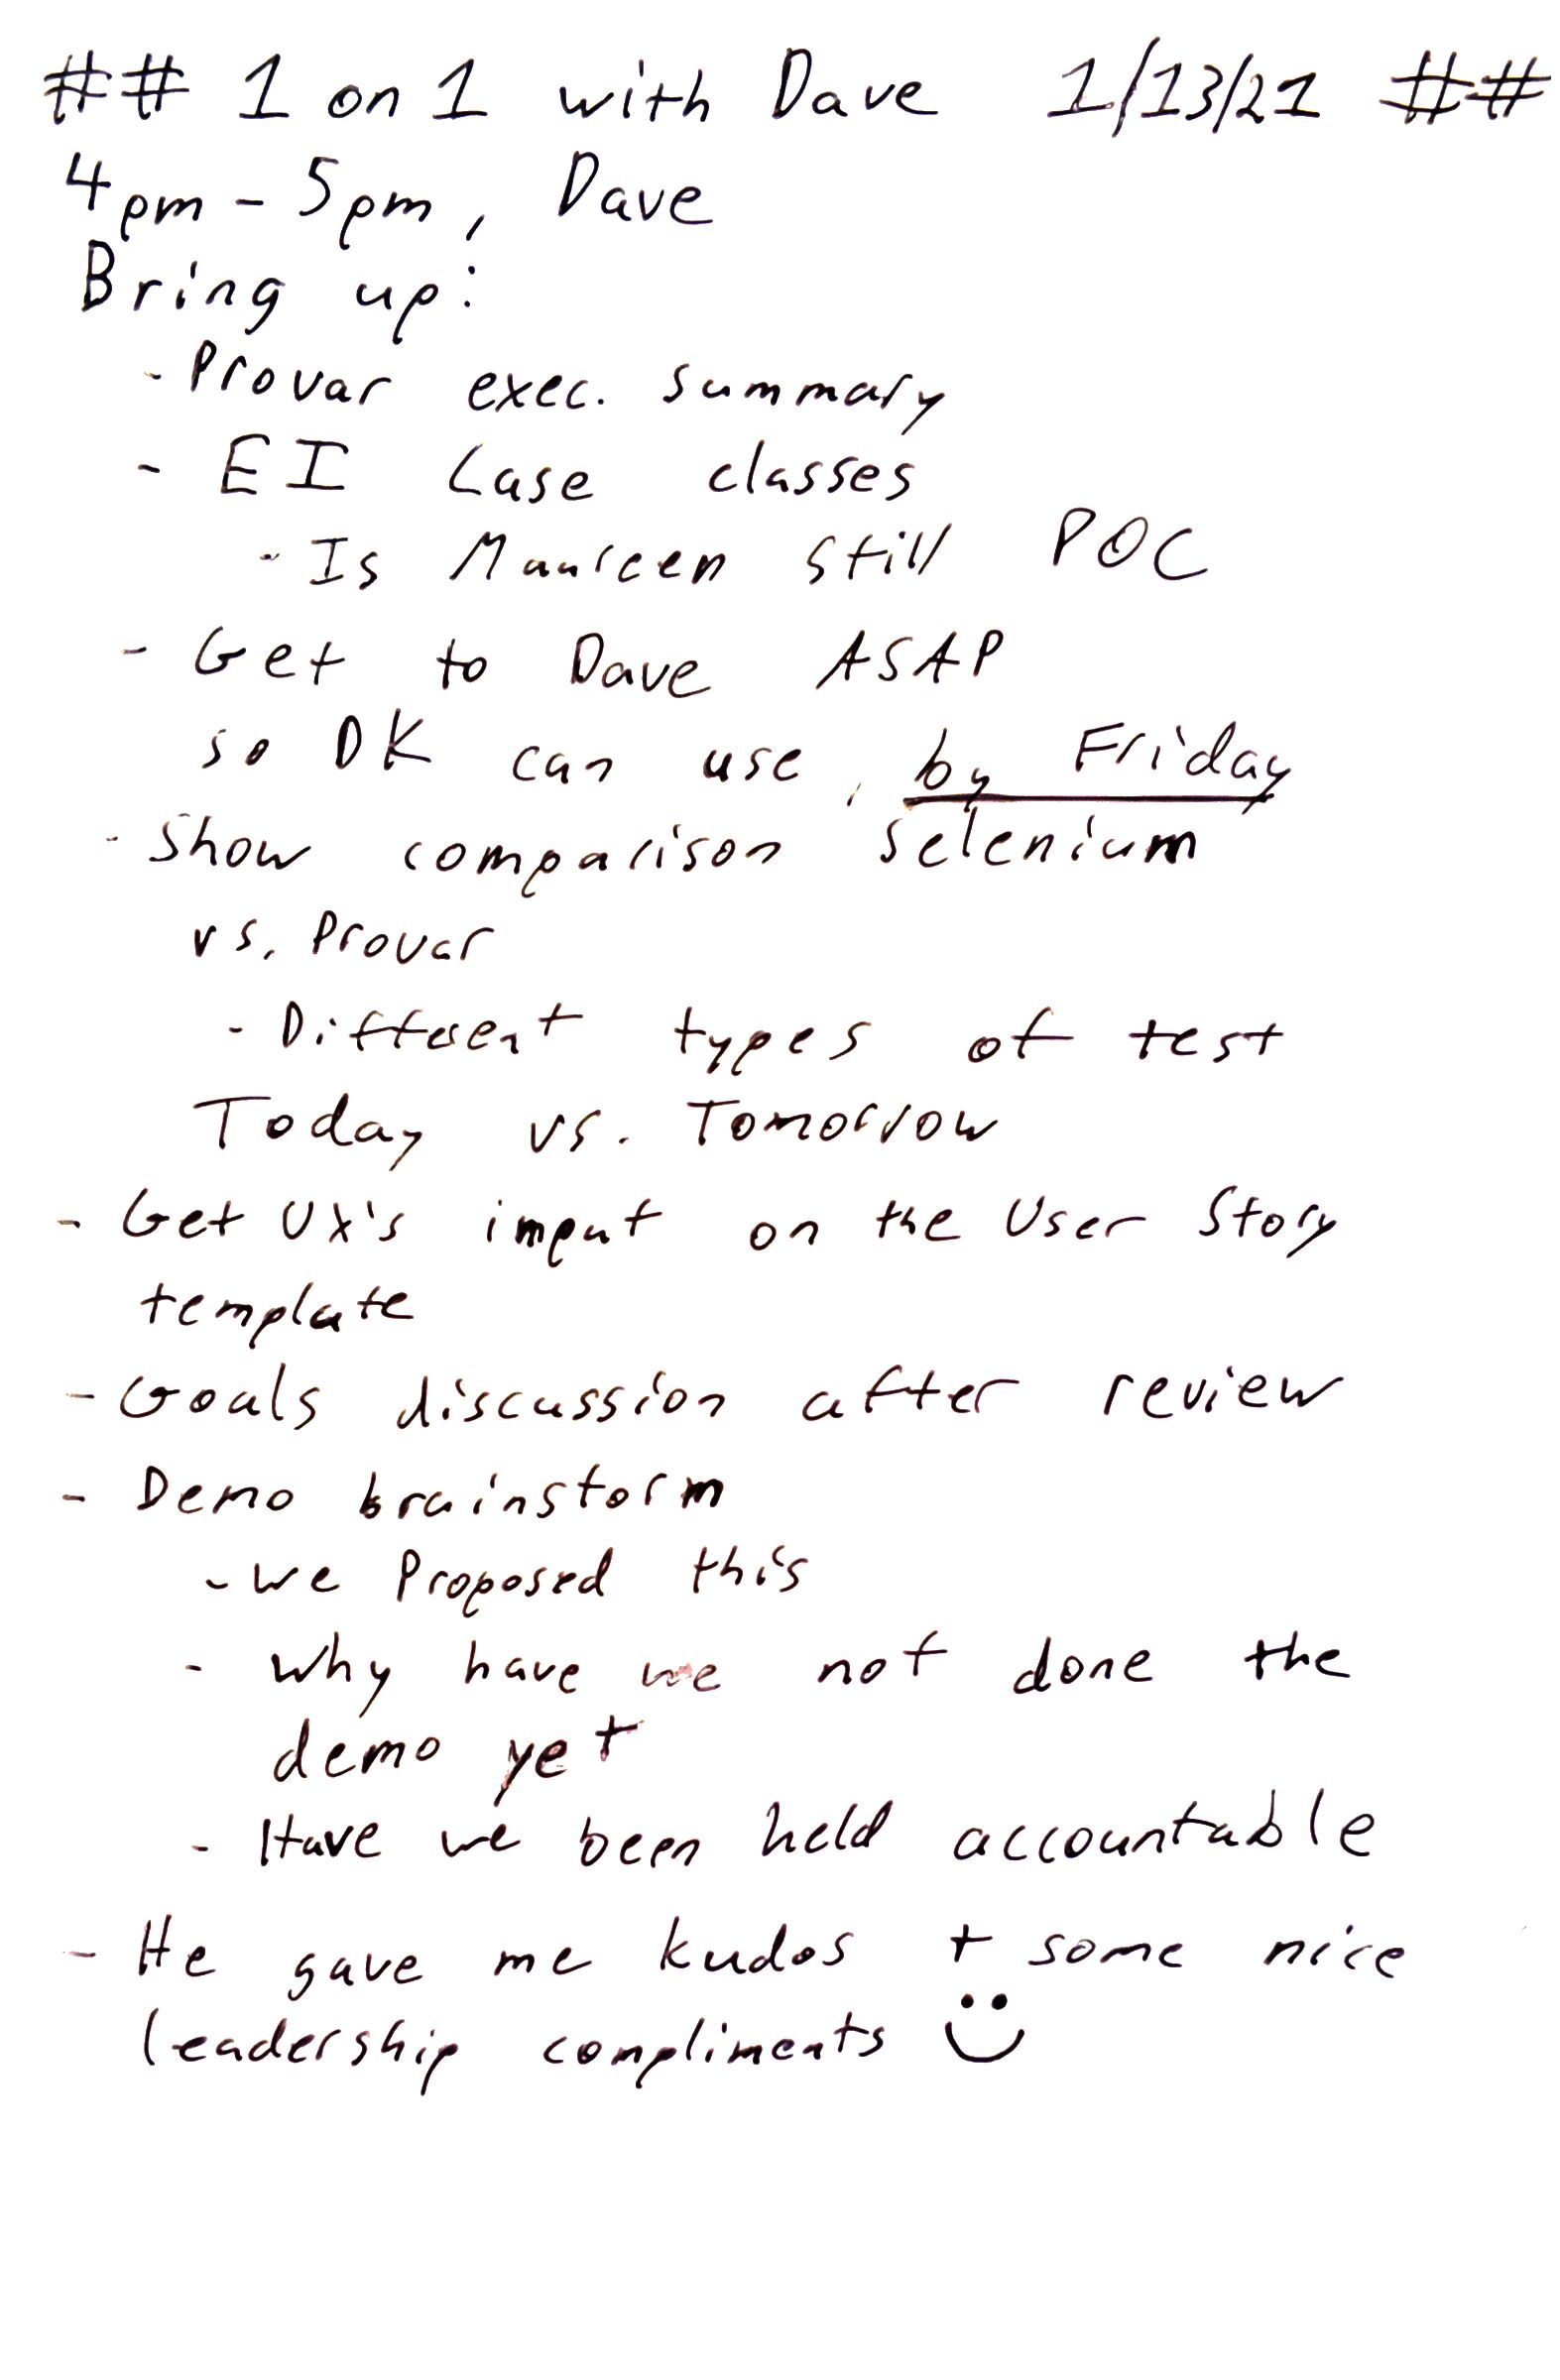 ## 1 on 1 with Dave 1/13/21 ##
4pm - 5pm, Dave
Bring up:
- Provar exec. summary
- EI Case classes
- Is Maureen still POC
- Get to Dave ASAP
so DK can use, by Friday
- Show comparison Selenium
vs. Provar
- Different types of test
Today vs. Tomorrow
- Get UX's input on the User Story
template
- Goals discussion after review
- Demo brainstorm
- we Proposed this
- Why have we not done the
demo yet
- Have we been held accountable
- He gave me kudos + some nice
leadership compliments